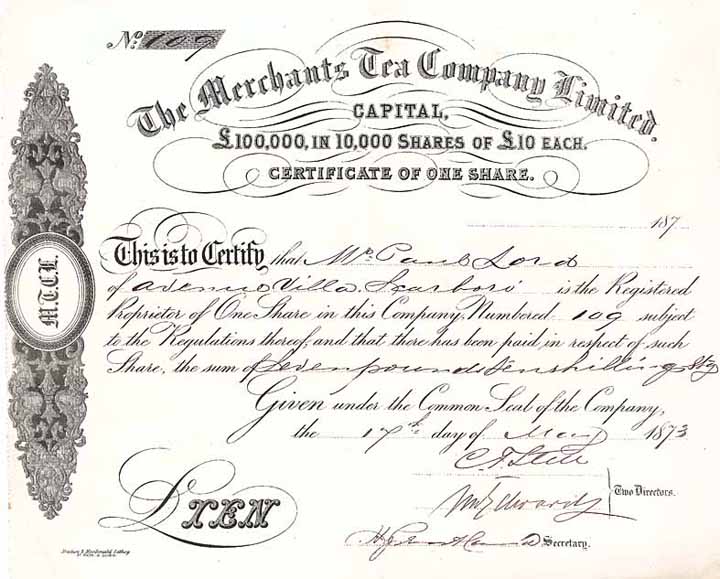 No. 109
The Merchants Tea Company Limited.
CAPITAL,
£100,000, IN 10,000 SHARES OF £10 EACH.
CERTIFICATE OF ONE SHARE.
187
This is to Certify that Mr. Paul Lord
of Avenue Villa. Scarboro' is the Registered
Proprietor of One Share in this Company, Numbered 109 subject
to the Regulations thereof, and that there has been paid, in respect of such
Share, the sum of Seven pounds Ten shillings Stg
Given under the Common Seal of the Company,
the 17th day of May 1873
M.T.C.L.
Two Directors.
£TEN
Secretary.